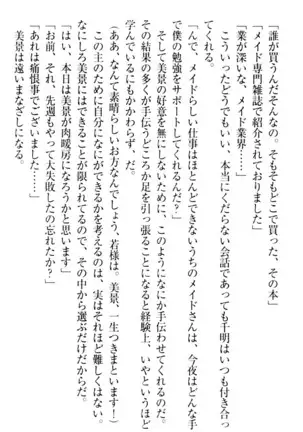 「誰が買うんだそんなの。そもそもどこで買った、その本」
「メイド専門雑誌で紹介されておりました」
「業が深いな、メイド業界……」
こういったどうでもいい、本当にくだらない会話であっても千明はいつも付き合っ
てくれる。
「んで、メイドらしい仕事はほとんどできないうちのメイドさんは、今夜はどんな手
で僕の勉強をサポートしてくれるんだ？」
そして美景の好意を無にしないために、このようになにか手伝わせてくれるのだ。
その結果の多くが手伝うどころか足を引っ張ることになると経験上、いやというほど
学んでいるにもかかわらず、だ。
（ああ、なんて素晴らしいお方なんでしょう、若様は。美景、一生つきまといます！）
この主のために自分になにができるかを考えるのは、実はそれほど難しくはない。
なにしろ美景にはできることが限られてるので、その中から選ぶだけだからだ。
「はい、本日は美景が肉暖房になろうかと思います」
「お前、それ、先週もやって大失敗したの忘れたか？」
「あれは痛恨事でございました……」
美景は遠いまなざしになる。